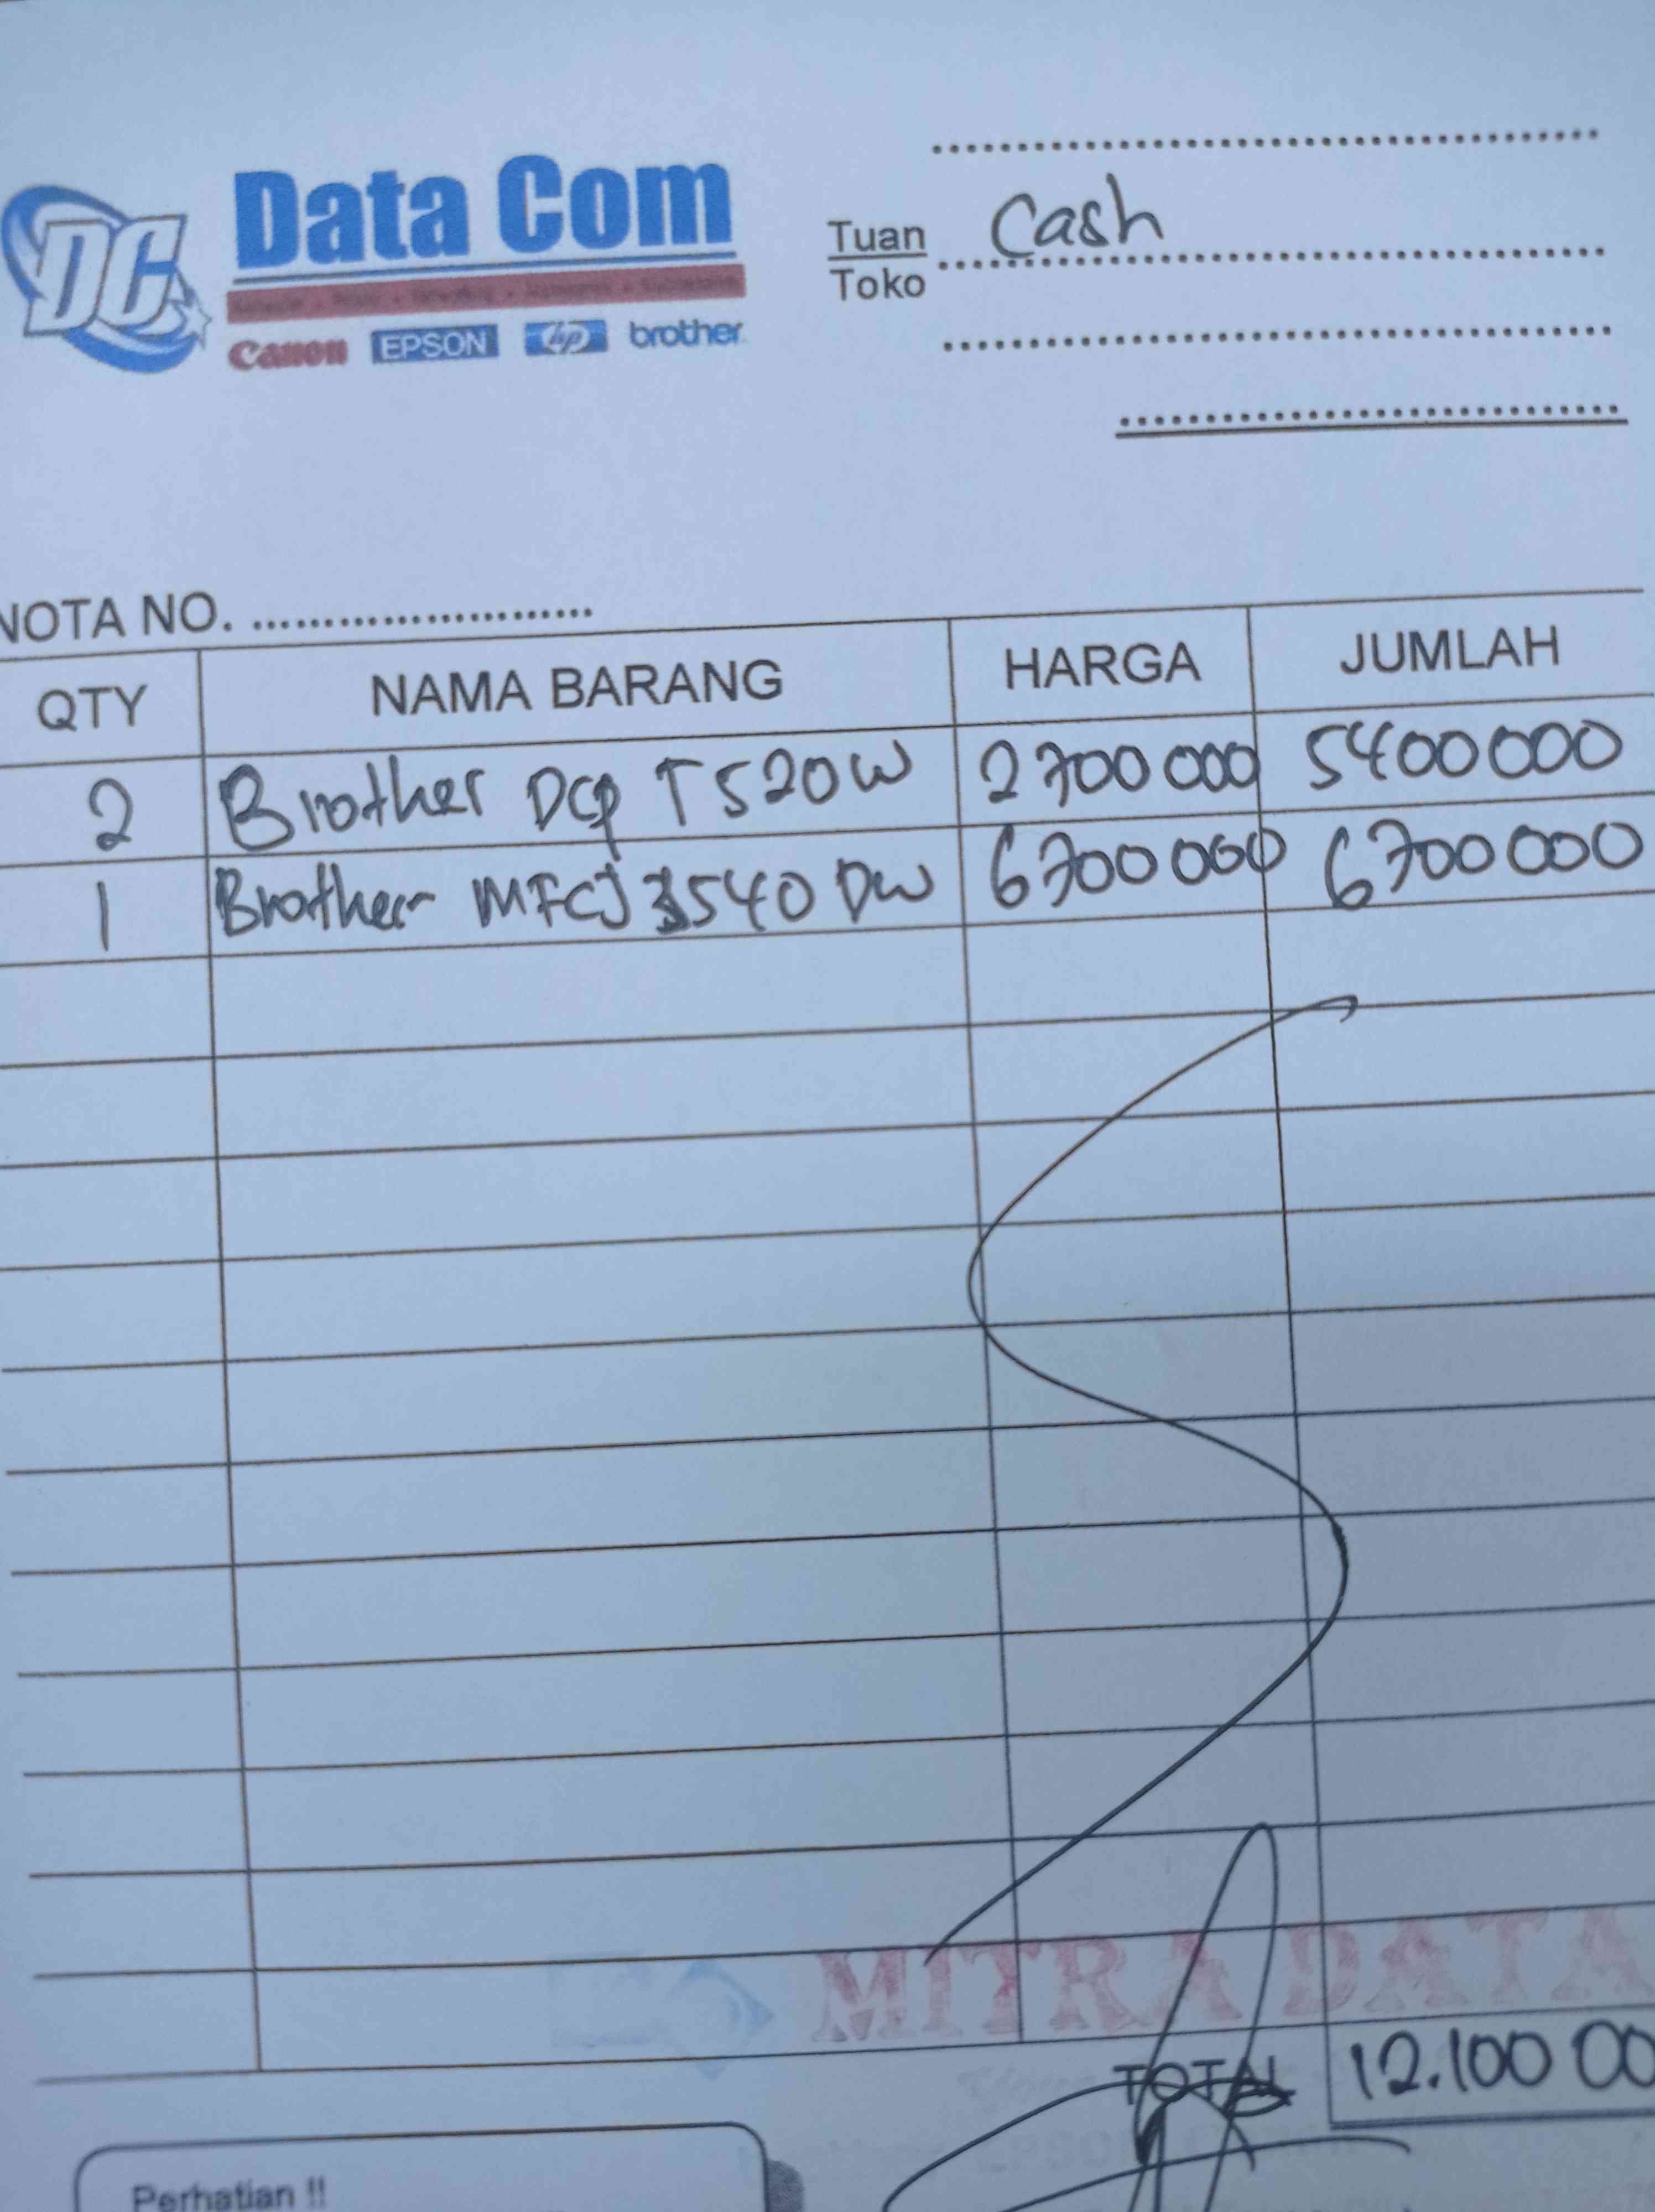 Data Com
DC
Canon EPSON hp brother
Tuan Cash
Toko
NOTA NO.
QTY NAMA BARANG HARGA JUMLAH
2 Brother DCP T520W 2700 000 5400000
1 Brother MFCJ 3540 DW 6700 000 6700000
MITRA DATA
TOTAL 12.100 00
Perhatian !!